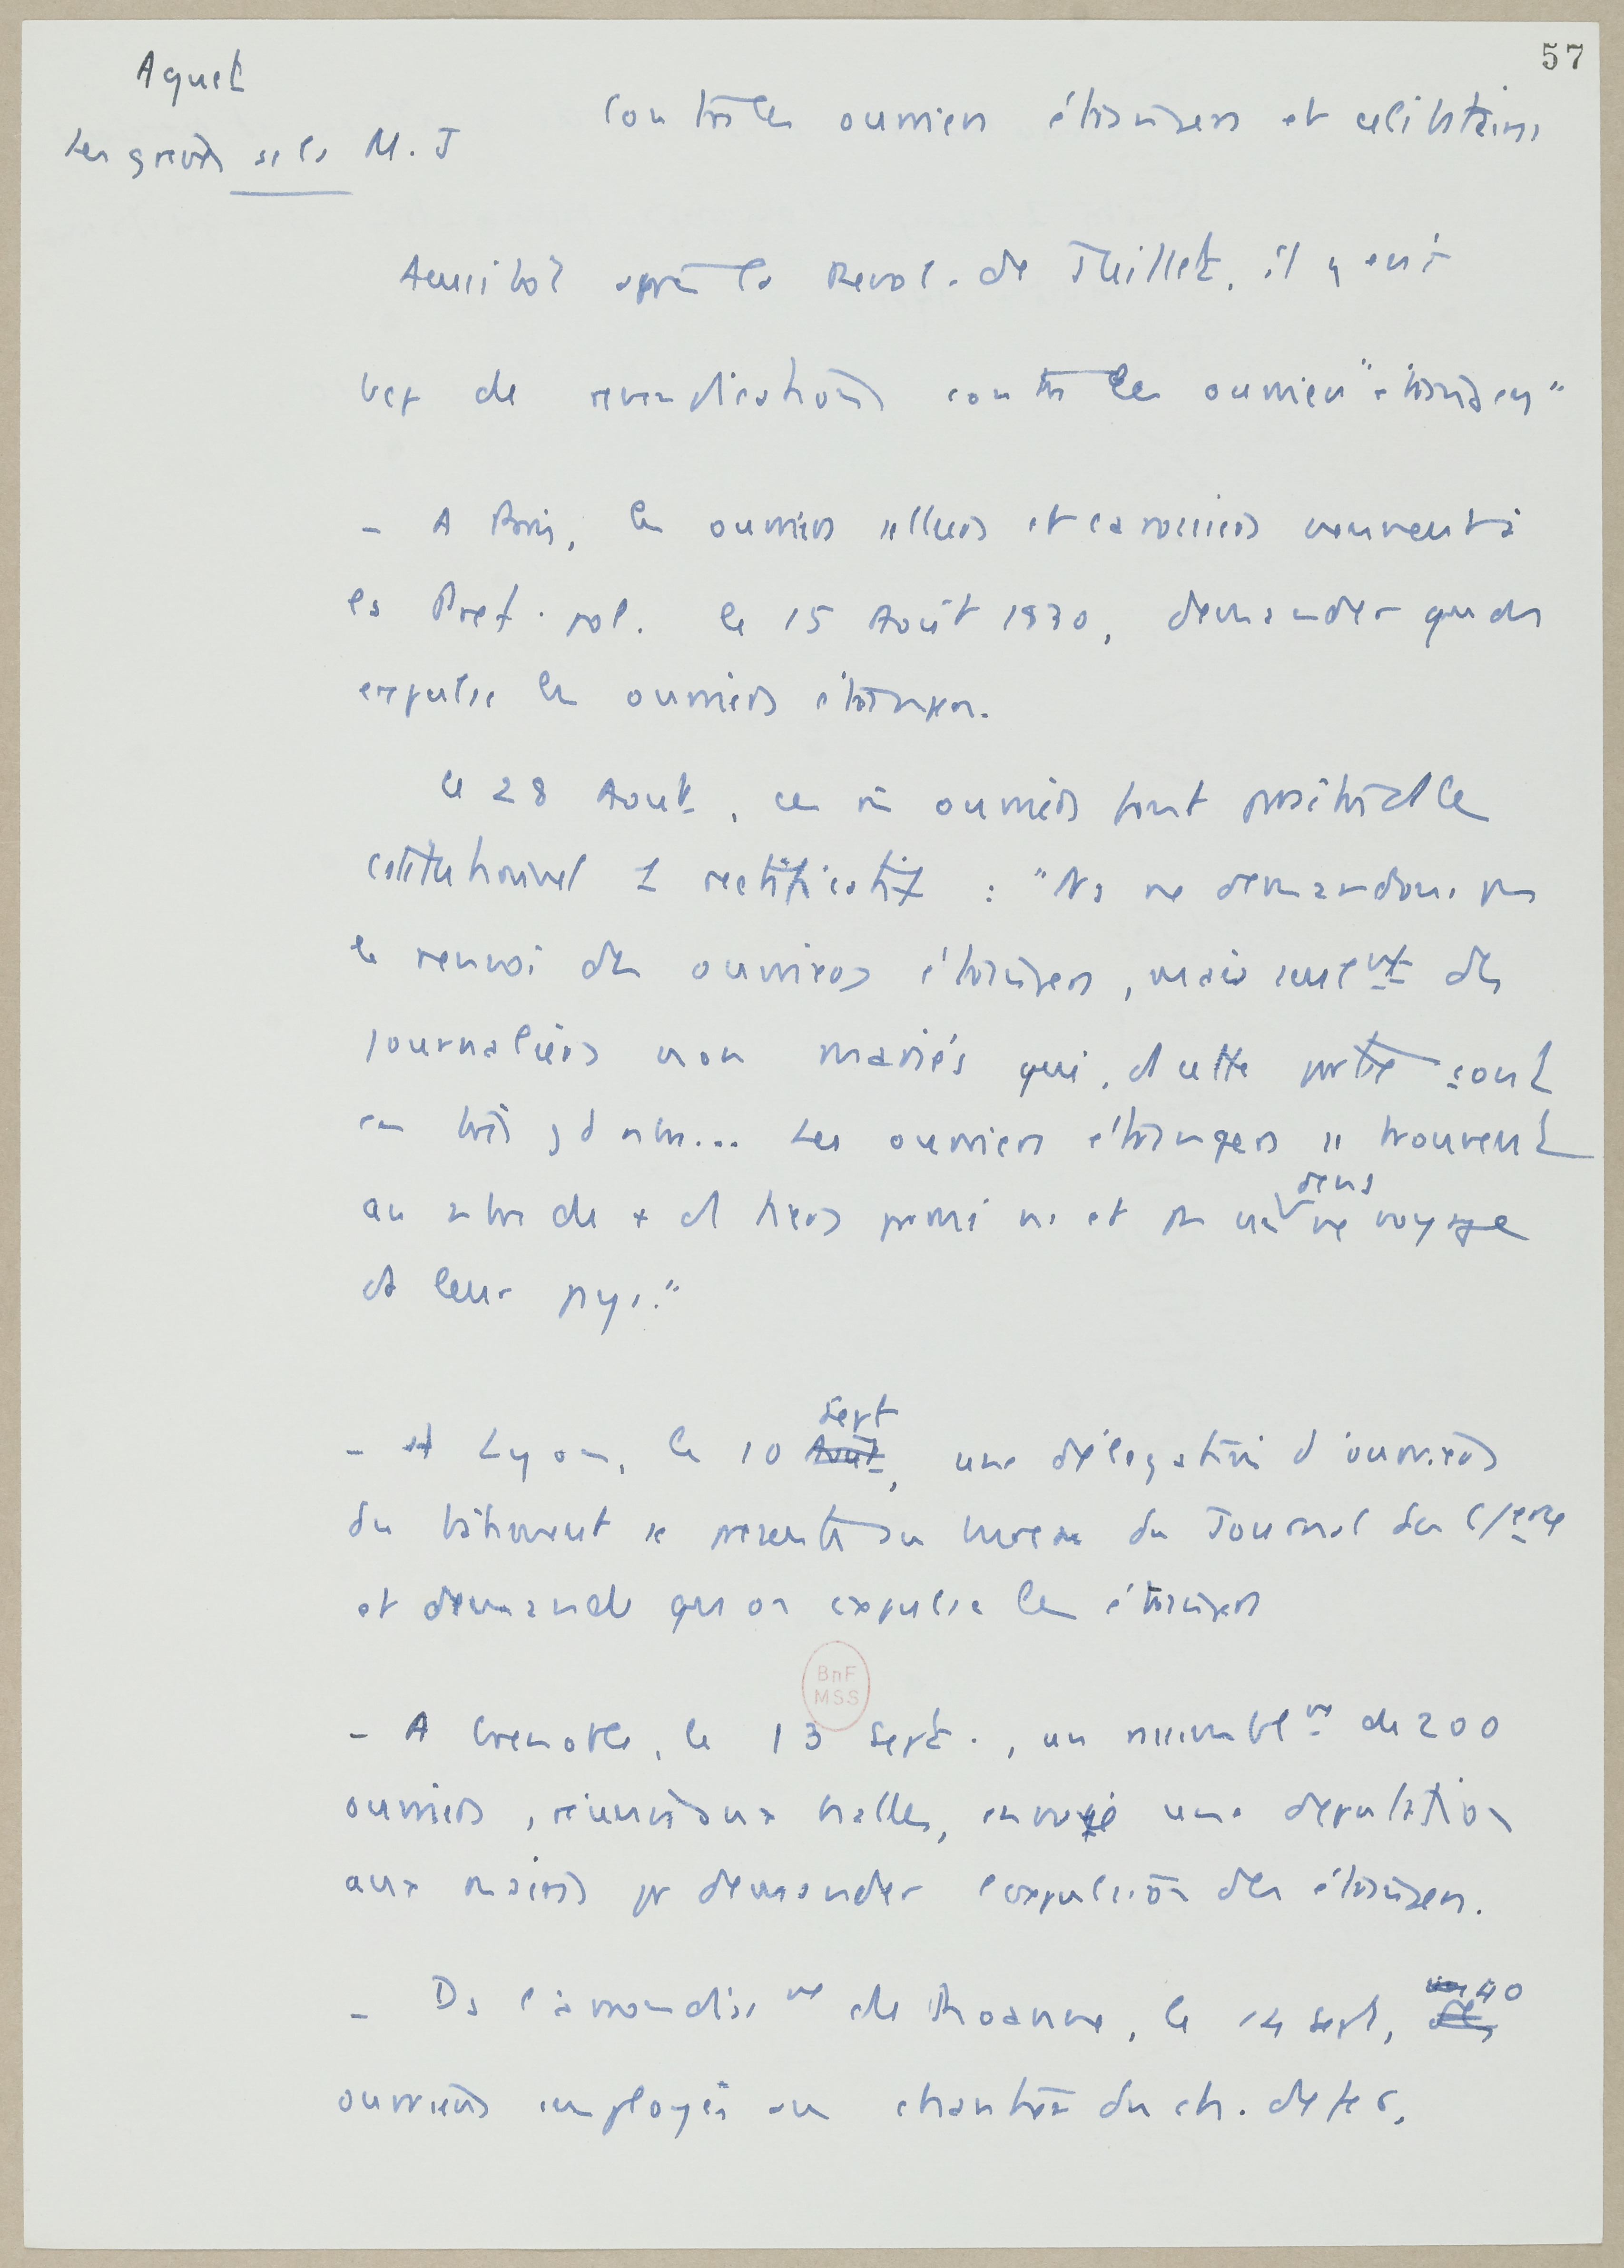 57
Aguet
Les grèves ss la M. J
Contre les ouvriers étrangers et célibataires
Aussitôt après la Revol. de Juillet, il y eut
bcp de revendications contre les ouvriers "étrangers"
- A Paris, les ouvriers selliers et carossiers vinrent à
la Pref. pol. le 15 Août 1830, demander qu'on
expulse les ouvriers étrangers.
Le 28 Aout, ces m ouvriers font paraître ds le
Cstitutionnel 1 rectificatif : "Ns ne demandons pas
le renvoi des ouvriers étrangers, mais seulemt des
journaliers non mariés qui, ds cette partie sont
en très gd nbre... Les ouvriers étrangers se trouvent
au nbre de + d tiers parmi ns et
sens
voyage
ds leur pays."
Sept
- A Lyon, le 10 Août, une délégation d'ouvriers
du bâtiment se présente au bureau du Journal du C/erce
et demande qu'on expulse les étrangers
BnF
MSS
- A Grenoble, le 13 Sept., un rassemblemt de 200
ouvriers, réunis aux halles, envoie une députation
aux maires pr demander l'expulsion des étrangers.
- Ds l'arrondisemt de Roanne, le 14 sept, 40
ouvriers employés au chantier du ch. de fer,